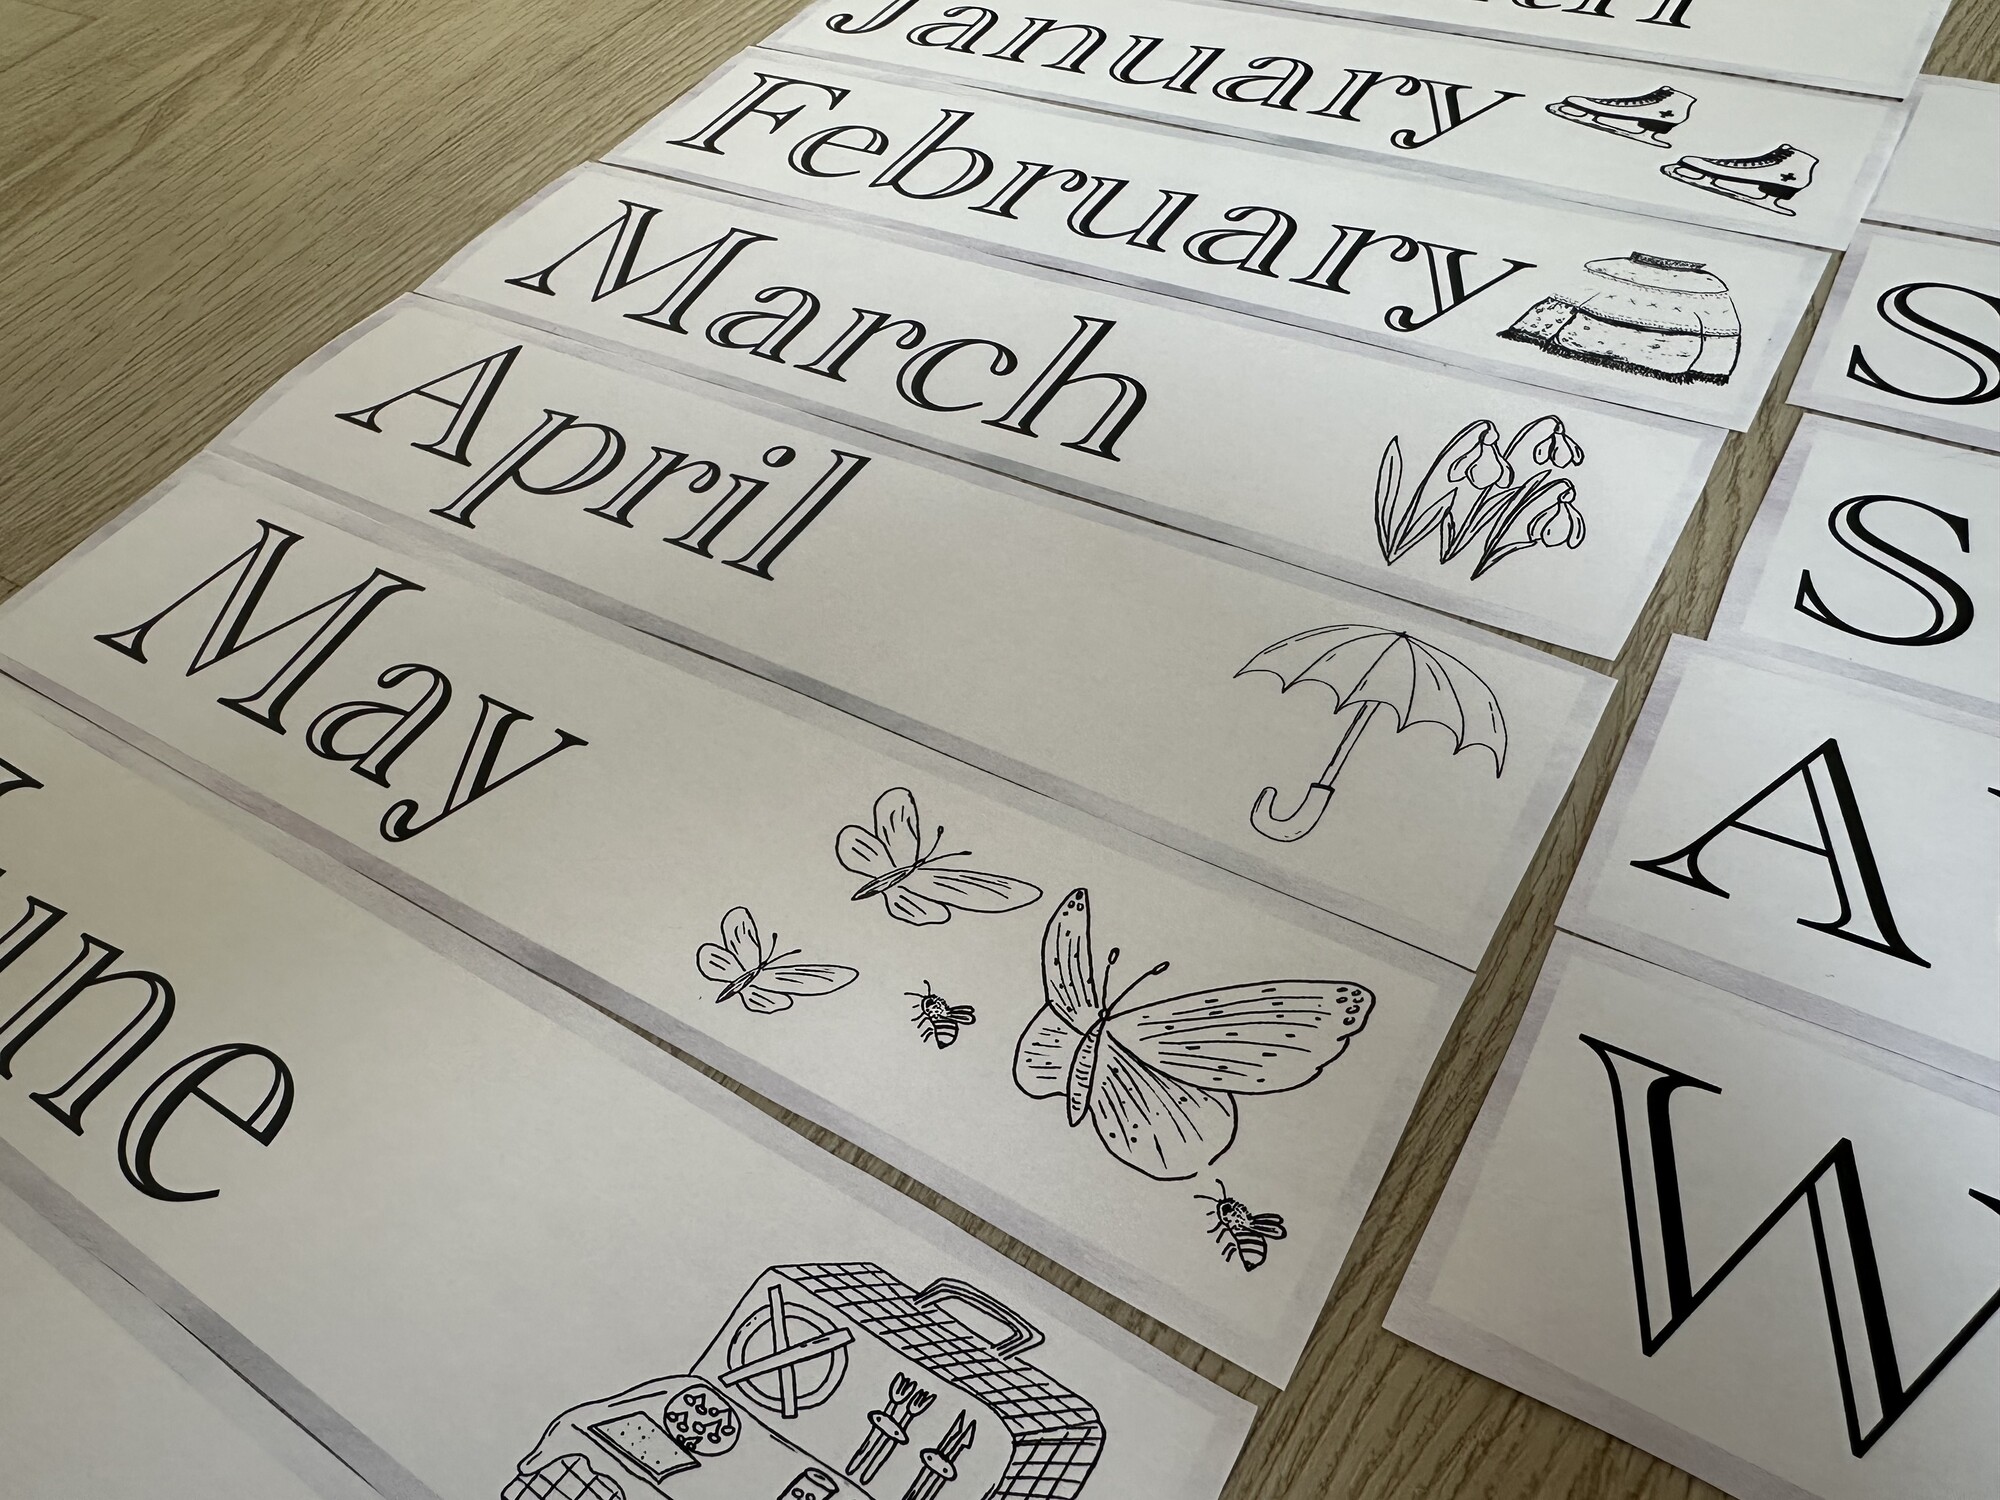 January
February
March
April
May
June
S
S
A
W